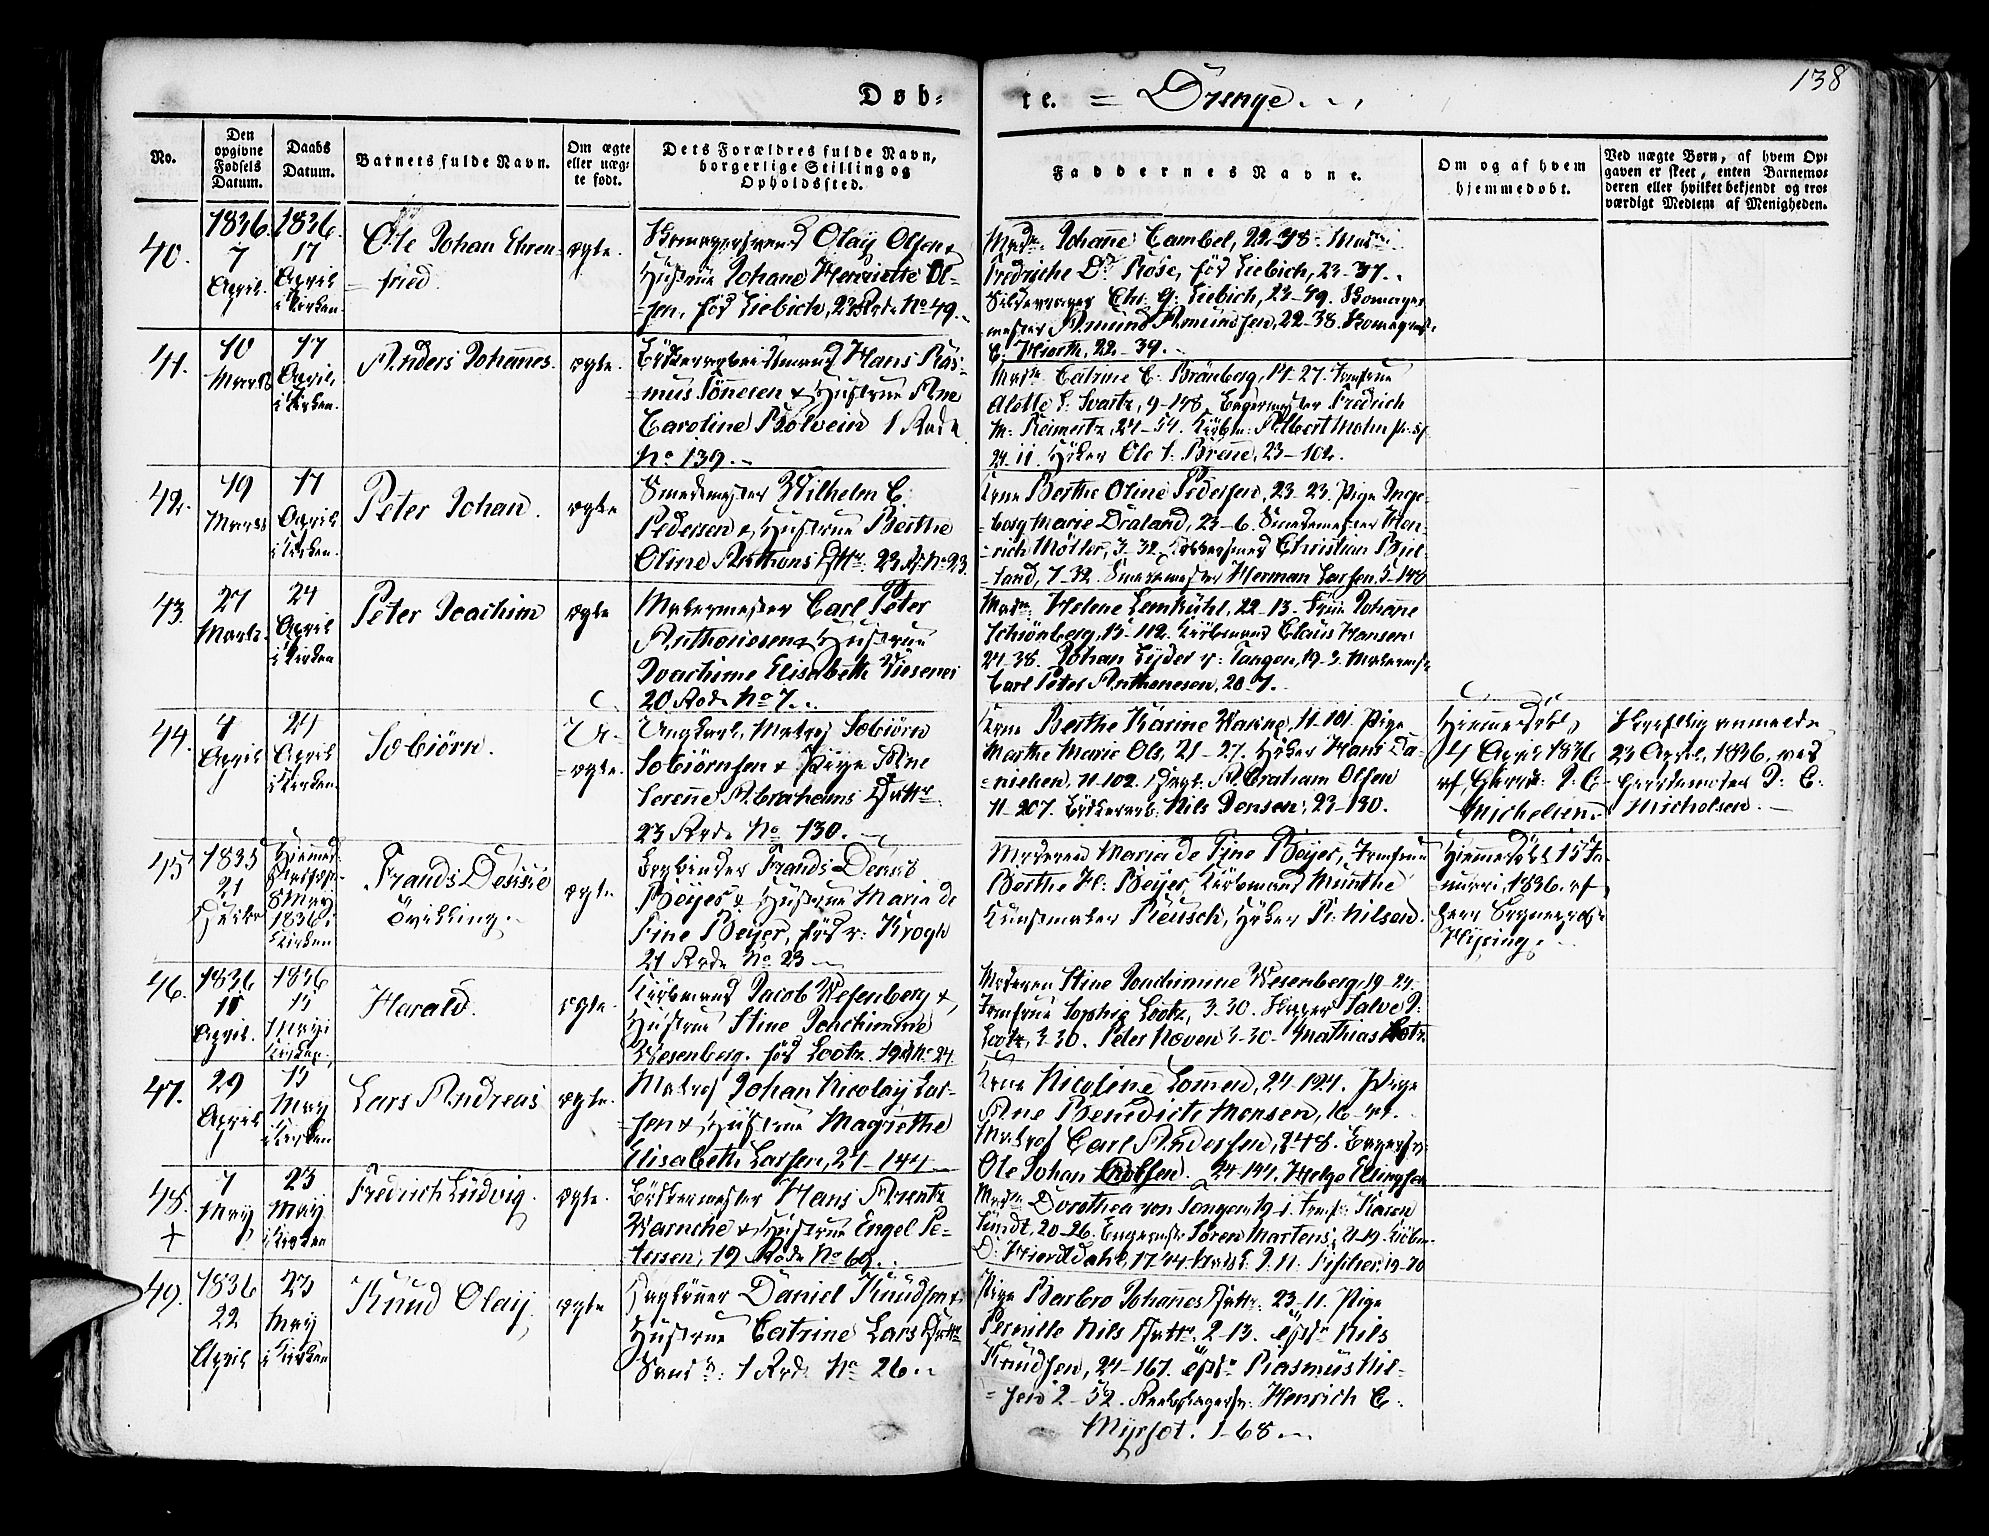 138
Døb- te. = Drenge.
No.
Den opgivne Fødsels Datum.
Daabs Datum.
Barnets fulde Navn.
Om ægte eller uægte født.
Dets Forældres fulde Navn, borgerlige Stilling og Opholdssted.
Faddernes Navne.
Om og af hvem hjemmedøbt.
Ved uægte Børn, af hvem Opgaven er skeet, enten Barnemoderen eller hvilket bekjendt og troværdigt Medlem af Menigheden.
40.
1836. 7 April.
1836. 17 April i Kirken
Ole Johan Ehren-
=fried.
ægte.
Olaij Olsen &
Hustrue Johane Henriette Ol-
=sen, fød Liebich, 23 Rode No 49.
Mad: Johane Cambel, 22-38.
Fredriche D: Rose, fød Liebich, 23-37.
Chr. G: Liebich, 23-49.
Amund Amundsen, 22-38.
C. Hiorth, 22-39.
41.
10 Marts
17 April, i Kirken.
Anders Johannes.
ægte.
Hans Ras-
=mus Tönnesen & Hustrue Ane
Caroline Bolvein 1 Rode
No 139.
Mad: Catrine C: Brünberg, 14-27. Jomfrue
Alette S: Svartz, 9-148, Fredrich
M: Reimertz, 24-54. Albert Mohn
24-11. Høker Ole J: Brene, 23-102.
42.
19 Marts
17 April i Kirken.
Peter Johan.
ægte
Smedemester Wilhelm C:
Pedersen & Hustrue Berthe
Oline Anthons Datter: 23 R: No 23.
Kone Berthe Oline Pedersen, 23-23. Pige Inge-
=borg Marie Dräland, 23-6. Smedemester Hen-
=rich Möller, 3-32. Christian Biel-
=land, 7-32. Smedemester Herman Larsen, 3-148
43.
27 Marts.
24 April i Kirken
Peter Joachim
ægte
Malermester Carl Peter
Anthonesen & Hustrue
Joachime Elisabeth Wiesener
20 Rode No 7.
Mad: Helene Lemkühl, 22-13. Frue Johane
Schiönberg, 15-112. Kiöbmand Claus Hansen:
24-38. Johan Lyder v: Tangen, 19-3.
Carl Peter Anthonesen, 20-7.
44.
4 April
24 April i Kirken.
Tobiörn.
U-
=ægte.
Ungkarl, Matros Tobiörn
Tobiörnsen & Pige Ane
Serene Abrahams Datter.
23 Rode No 130.
Kone Berthe Karine Waring, 11-101. Pige
Marthe Marie Ols, 21-27. Høker Hans Da-
=nielsen, 11-102. Abraham Olsen
11-207. Nils Jensen, 23-130.
Hiemmedøbt
4 April 1836
af J: C:
Michelsen
Skriftlig anmeldt
23 April, 1836, ved
J: C:
Michelsen.
45
1835 21
Hiemmed:
8 May 1836 i Kirken
Frands Dessié
Tvilling.
ægte
Bogbinder Frands Denis
Beyer & Hustrue Maria de
Fine Beyer, fød v: Krogh
21 Rode No 23
Moderen Maria de Fine Beyer, Jomfrue
Berthe H: Beyer, Kiöbmand Munthe
Kunstmaler Reusch, Høker P: Nilsen.
Hiemmedøbt 15 Ja-
=nuari, 1836. af
Herr Sogneprest
Hysing.
46.
1836 11 April.
1836 15 May i Kirken
Harald.
ægte.
Kiöbmand Jacob Wesenberg &
Hustrue Stine Jochimine
Wesenberg. fød Lootz. 19 R No 24.
Moderen Stine Jochimine Wesenberg, 19-24.
Jomfrue Sophie Lootz, 3-30. Salve J:
Lootz, 3-30. Peter Noven 3-30. Mathias Lotz
47.
29 April
15 May i Kirken
Lars Andreas
ægte.
Matros Johan Nicolay Lar-
=sen & Hustrue Magrethe
Elisabeth Larsen, 24-144
Kone Nicoline Lomen, 24-124. Pige
Ane Benedicte Monsen, 16-
Matros Carl Andersen, 2-48.
Ole Johan Knolsen. 24-144. Helge Ellingsen
48.
+
7 May
23 May i Kirken
Fredrich Ludvig.
ægte.
Bødkermester Hans Arentz
Warncke & Hustrue Engel Pe-
tersen, 19 Rode No 69.
Mad: Dorothea von Tangen, 19-1. Jomf: Karen
Lundt, 20-26. Søren Martens, 21-19. Kiöbm:
D: Hierdtdahl, 17-74. J. N: Pischer, 19-70
49.
1836 22 April
23 May i Kirken
Knud Olaij.
ægte
Daglönner Daniel Knudsen &
Hustrue Catrine Lars Datter
1 Rode No 26.
Pige Barbro Johannes Datter. 23-11. Pige
Pernille Nils Datter. 2-13. Nils
Knudsen, 24-167. Rasmus Nil-
=sen 2-52. Henrich C:
Myrset. 1-68.